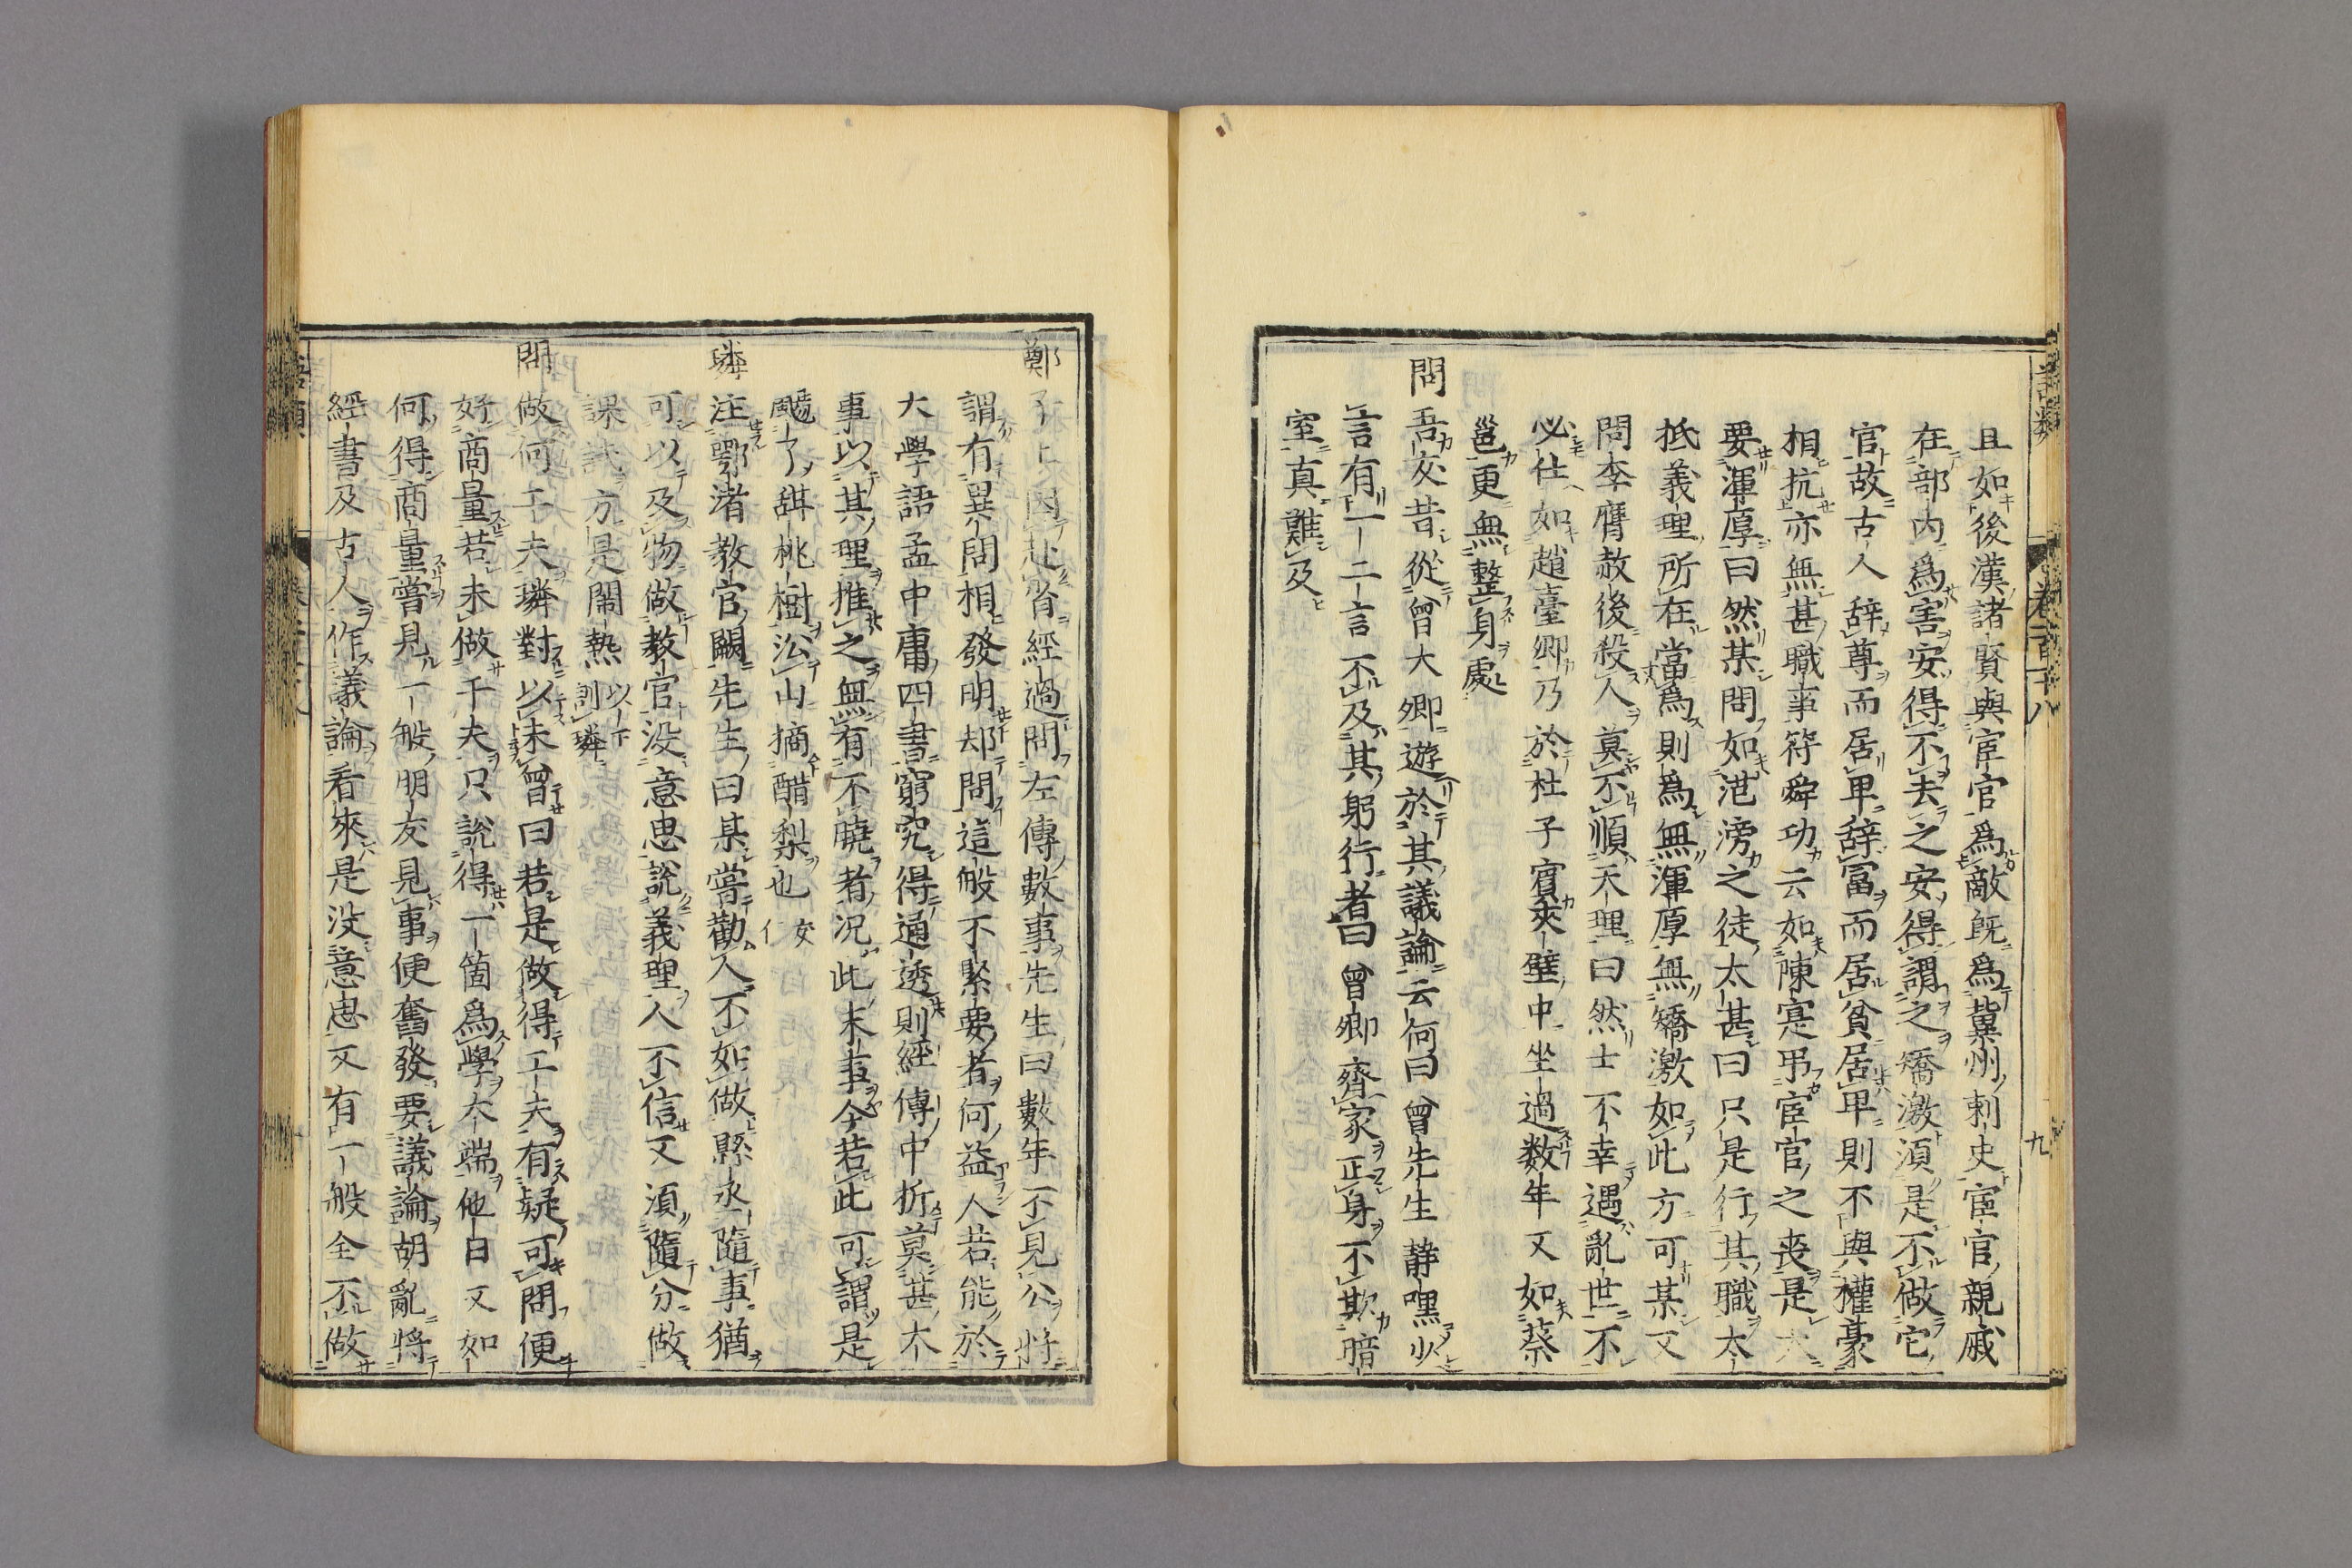 語類 卷百十八 九
且如後漢諸賢與宦官爲敵既爲冀州刺史宦官親戚
在部内爲害安得不去之安得謂之矯激須是不做它
官故古人辞尊而居卑辞富而居貧居卑則不與權豪
相抗亦無甚職事符舜功云如陳寔弔宦官之喪是大
要渾厚曰然某問如范滂之徒太甚曰只是行其職大
抵義理所在當爲則爲無渾厚無矯激如此方可某又
問李膺赦後殺人莫不順天理曰然士不幸遇亂世不
必仕如趙臺卿乃於杜子賓夾壁中坐過数年又如蔡
邕更無整身處
問吾友昔從曾大卿遊於其議論云何曰曾先生静嘿少
言有一二言不及其躬行者曰曾卿齊家正身不欺暗
室真難及
鄭子上因赴省經過問左傳數事先生曰數年不見公將
謂有異問相發明却問這般不緊要者何益人若能於
大學語孟中庸四書窮究得通透則經傳中折莫甚大
事以其理推之無有不曉者況此末事今若此可謂是
颺了甜桃樹㳂山摘醋梨也 友仁
璘注鄂渚教官闕先生曰某嘗勸人不如做縣丞隨事猶
可以及物做教官没意思說義理人不信又須隨分做
課試方是鬧熱 以下訓璘
問做何工夫璘對以未曾曰若是做得工夫有疑可問便
好商量若未做千夫只說得一箇爲學大端他日又如
何得商量嘗見一般朋友見事便奮發要議論胡亂將
經書及古人作議論看來是没意思又有一般全不做
語類